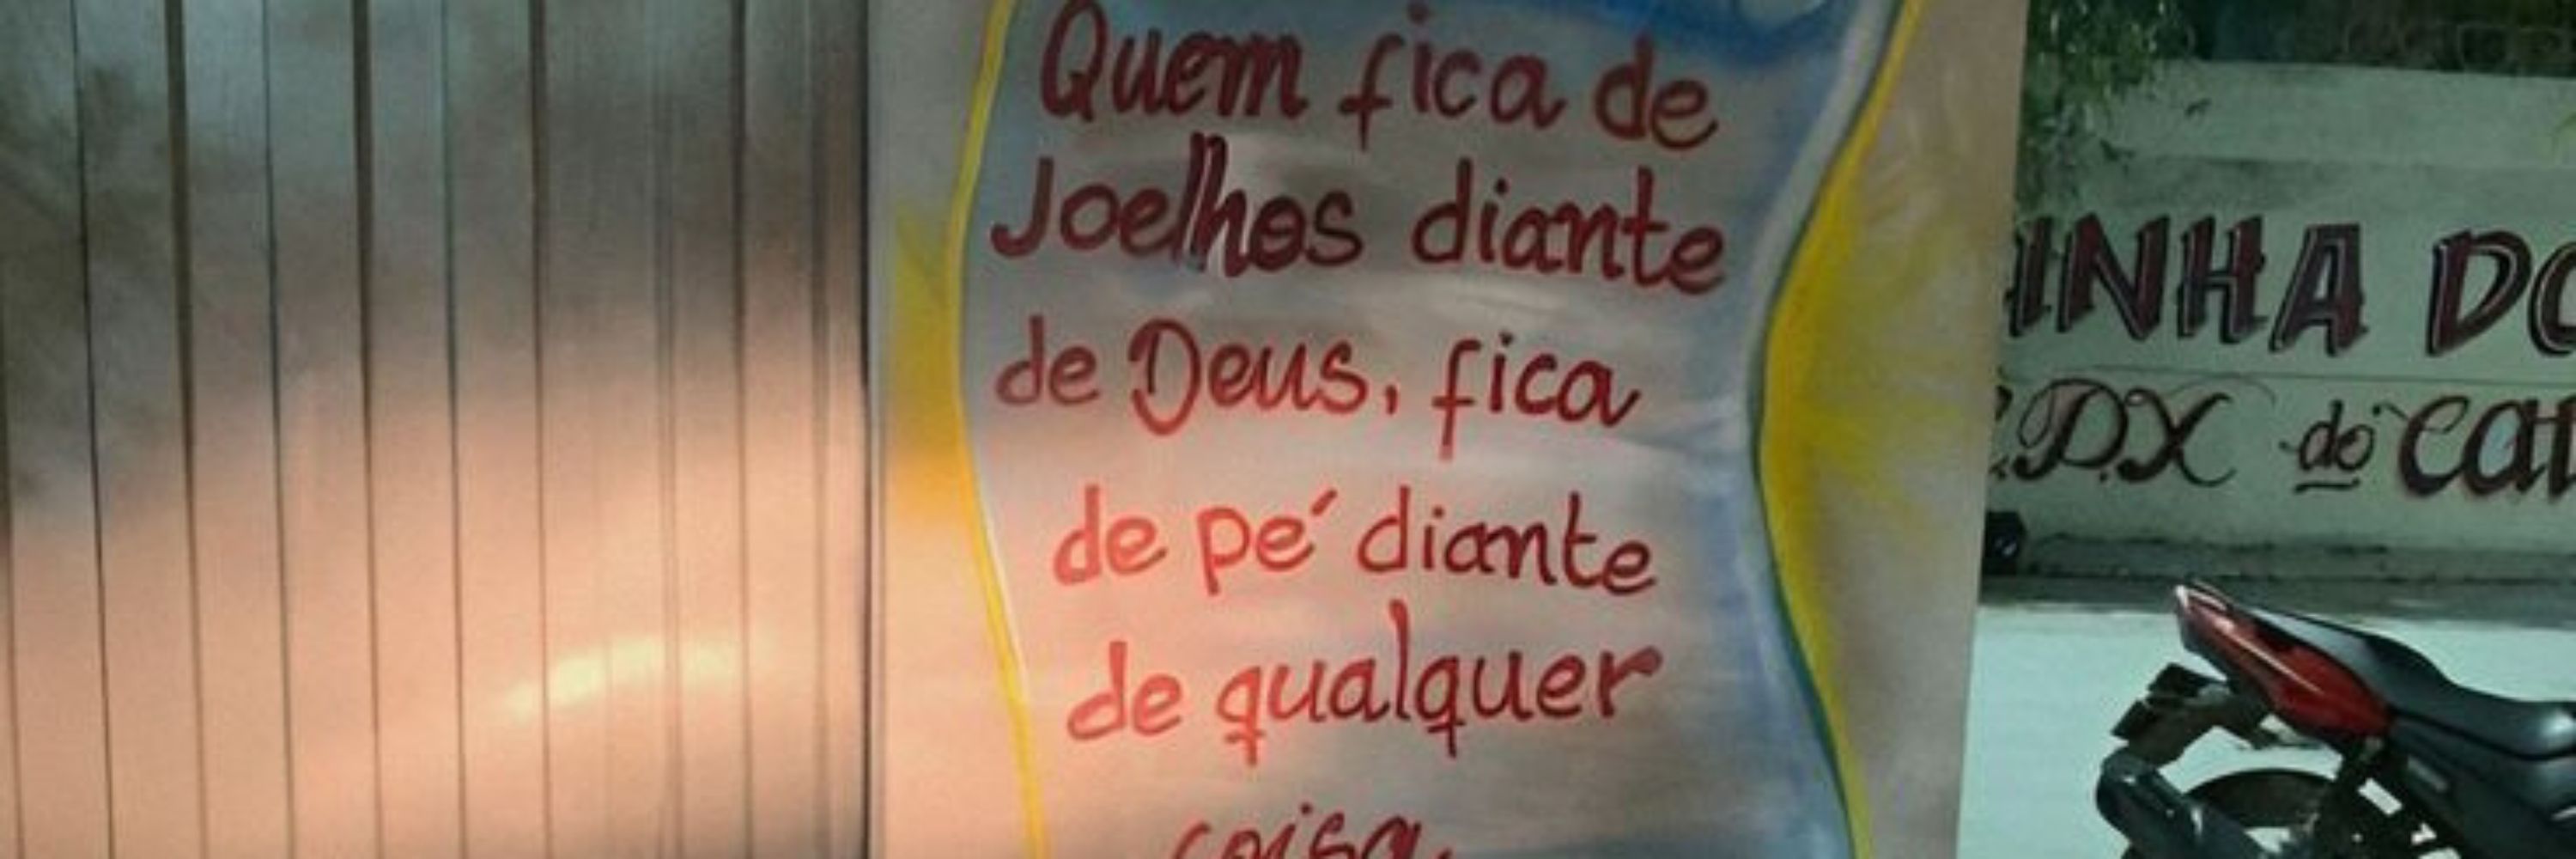 Quem fica de
Joelhos diante
de Deus, fica
de pé diante
de qualquer
coisa
INHA DO
P.D.X do